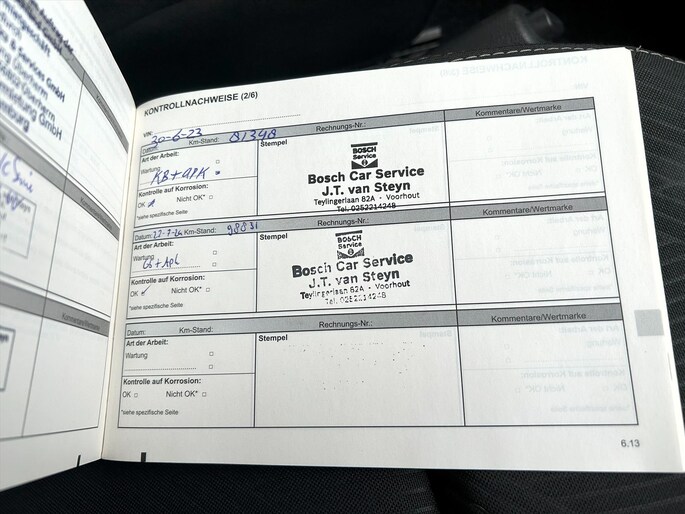 & Services GmbH
KONTROLLNACHWEISE (2/6)
VIN:
Datum: 30-6-23 Km-Stand: 81348 Rechnungs-Nr.: Kommentare/Wertmarke
Art der Arbeit: Stempel
Wartung
KB + APK
BOSCH
Service
Bosch Car Service
J.T. van Steyn
Teylingerlaan 82A - Voorhout
Tel. 0252214248
Kontrolle auf Korrosion:
OK Nicht OK*
*siehe spezifische Seite
Datum: Km-Stand: 98831 Rechnungs-Nr.: Kommentare/Wertmarke
Art der Arbeit: Stempel
Wartung
BOSCH
Service
Bosch Car Service
J.T. van Steyn
Teylingerlaan 82A - Voorhout
Tel. 0252214248
Kontrolle auf Korrosion:
OK Nicht OK*
*siehe spezifische Seite
Datum: Km-Stand: Rechnungs-Nr.: Kommentare/Wertmarke
Art der Arbeit: Stempel
Wartung
Kontrolle auf Korrosion:
OK Nicht OK*
*siehe spezifische Seite
6.13